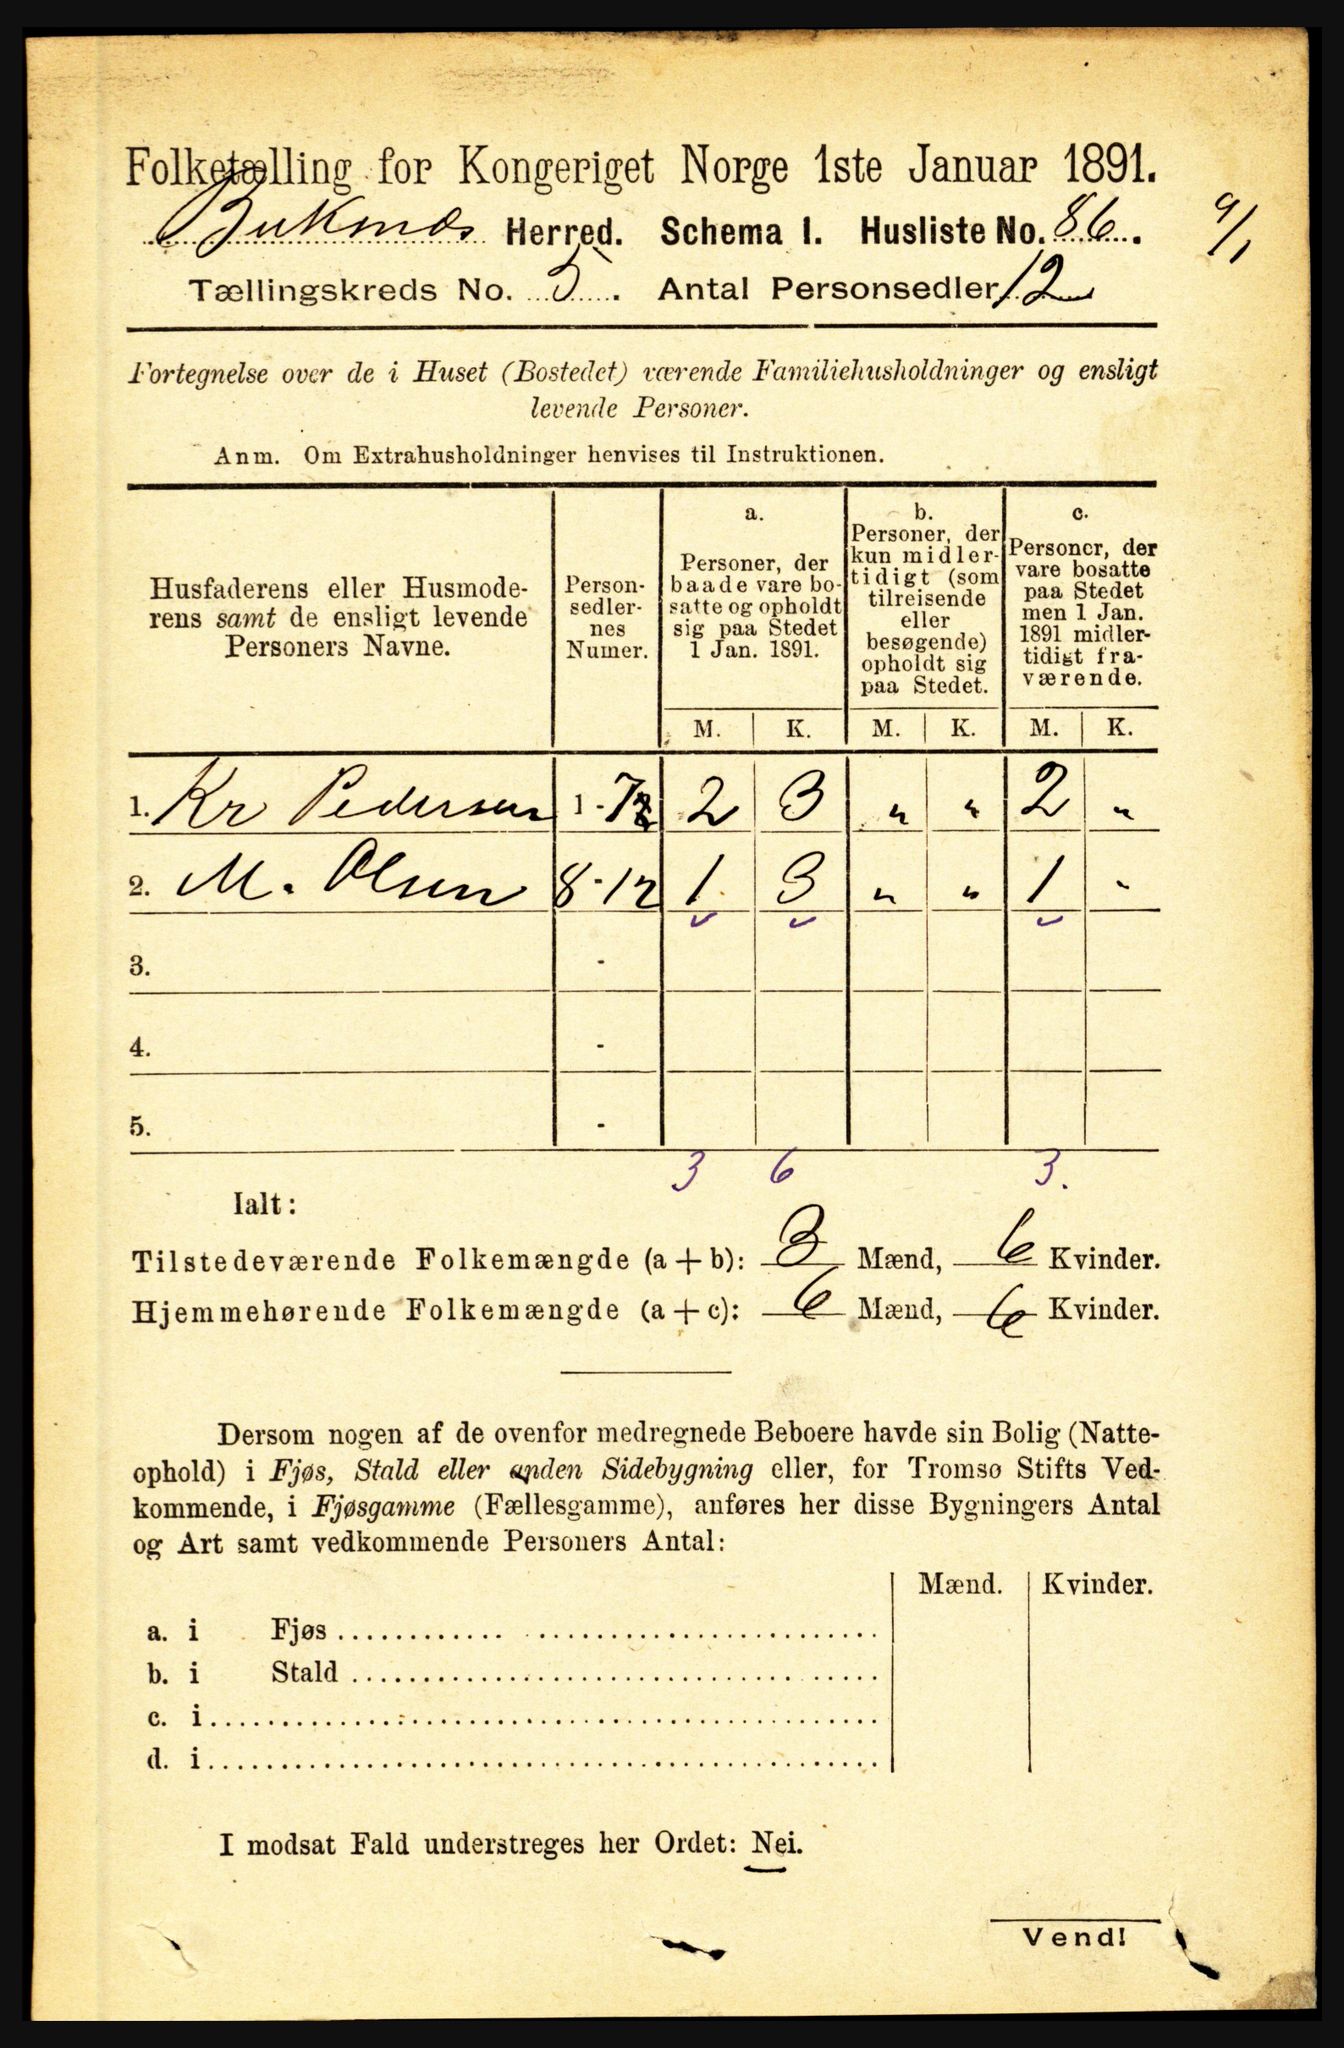 Folketælling for Kongeriget Norge 1ste Januar 1891.
Buksnæs Herred. Schema I. Husliste No. 86.
9/1
Tællingskreds No. 5. Antal Personsedler 12
Fortegnelse over de i Huset (Bostedet) værende Familiehusholdninger og ensligt
levende Personer.
Anm. Om Extrahusholdninger henvises til Instruktionen.
Husfaderens eller Husmode-
rens samt de ensligt levende
Personers Navne.
Person-
sedler-
nes
Numer.
a.
Personer, der
baade vare bo-
satte og opholdt
sig paa Stedet
1 Jan. 1891.
b.
Personer, der
kun midler-
tidigt (som
tilreisende
eller
besøgende)
opholdt sig
paa Stedet.
c.
Personer, der
vare bosatte
paa Stedet
men 1 Jan.
1891 midler-
tidigt fra-
værende.
M. K. M. K. M. K.
1. Kr Pedersen 1 - 7 2 3 " " 2 "
2. M. Olsen 8 - 12 1 3 " " 1 "
3. -
4. -
5. -
3 6 3.
Ialt:
Tilstedeværende Folkemængde (a + b): 3 Mænd, 6 Kvinder.
Hjemmehørende Folkemængde (a + c): 6 Mænd, 6 Kvinder.
Dersom nogen af de ovenfor medregnede Beboere havde sin Bolig (Natte-
ophold) i Fjøs, Stald eller anden Sidebygning eller, for Tromsø Stifts Ved-
kommende, i Fjøsgamme (Fællesgamme), anføres her disse Bygningers Antal
og Art samt vedkommende Personers Antal:
Mænd. Kvinder.
a. i Fjøs
b. i Stald
c. i
d. i
I modsat Fald understreges her Ordet: Nei.
Vend!